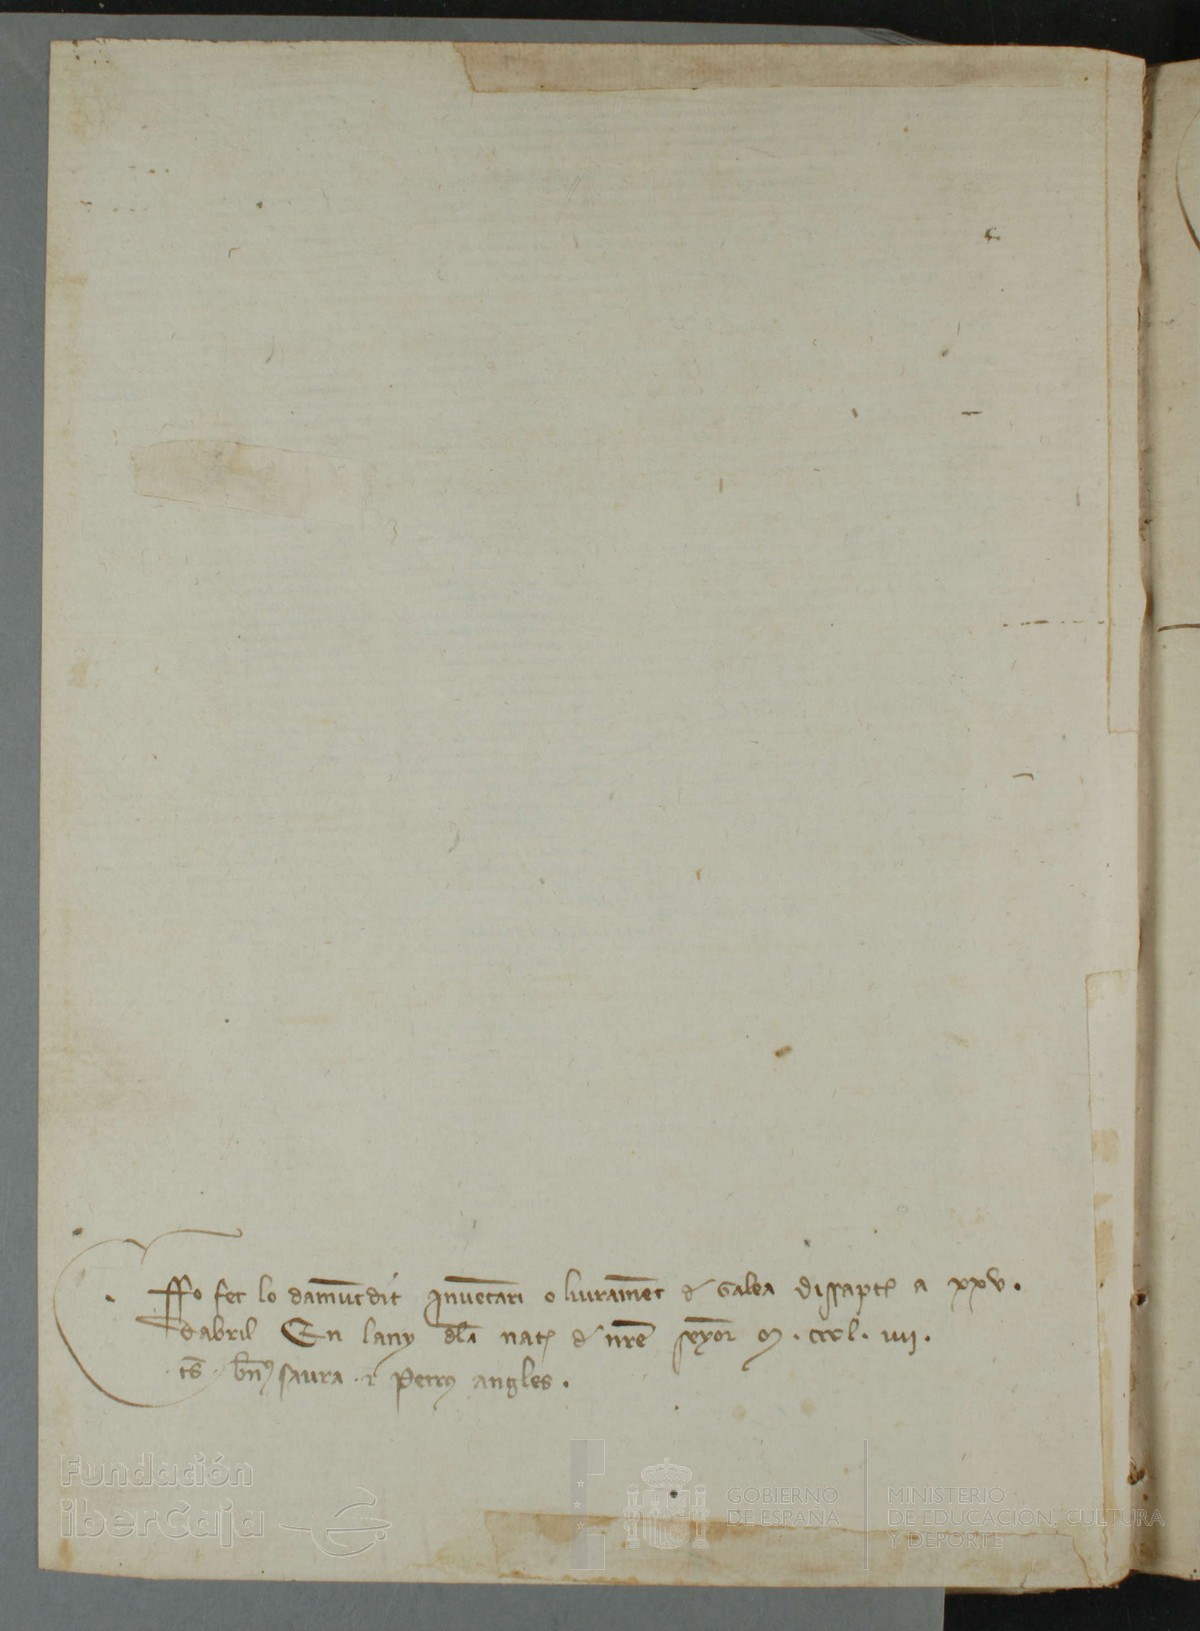 Ffo fet lo damūtdit Inuētari o liuramēt d' Galea dissapte a xxv.
dabril En lany dla nat d' nrē seyor M . ccc l . iiii .
ts . bn saura . e Petrus angles .
Fundación
iberCaja
GOBIERNO
DE ESPAÑA
MINISTERIO
DE EDUCACIÓN, CULTURA
Y DEPORTE